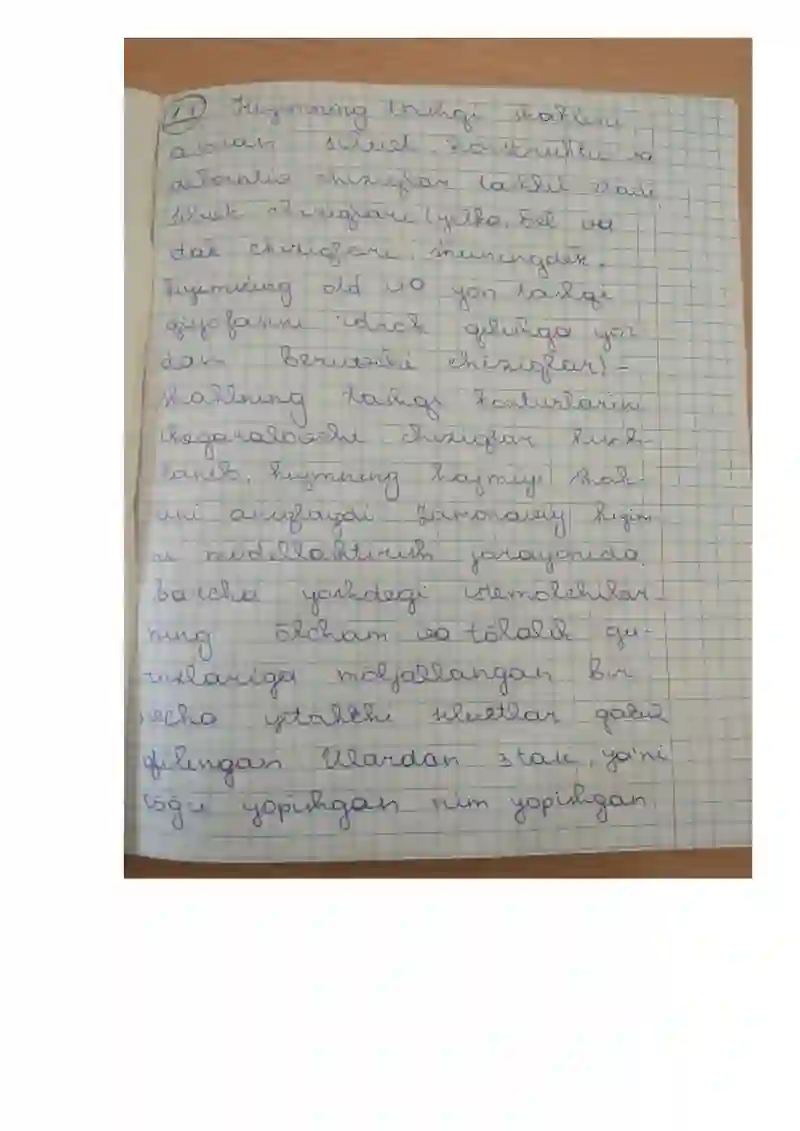 11 Kiyimning tashqi shaklini,
asosan siluet, konstruktiv va
dekorativ chiziqlar tashkil etadi.
Siluet chiziqlari (yelka, bel va
etak chiziqlari, shuningdek,
kiyimning old va yon tashqi
qiyofasini idrok qilishga yor
dam beruvchi chiziqlar) -
shaklning tashqi konturlarini
chegaralovchi chiziqlar hisob-
lanib, kiyimning hajmiy shak-
lini aniqlaydi Zamonaviy kiyim
ni modellashtirish jarayonida
barcha yoshdagi iste'molchilar-
ning o'lcham va to'lalik gu-
ruhlariga mo'ljallangan bir
necha yetakchi siluetlar qabul
qilingan Ulardan 3 tasi, ya'ni
yopishgan nim yopishgan,